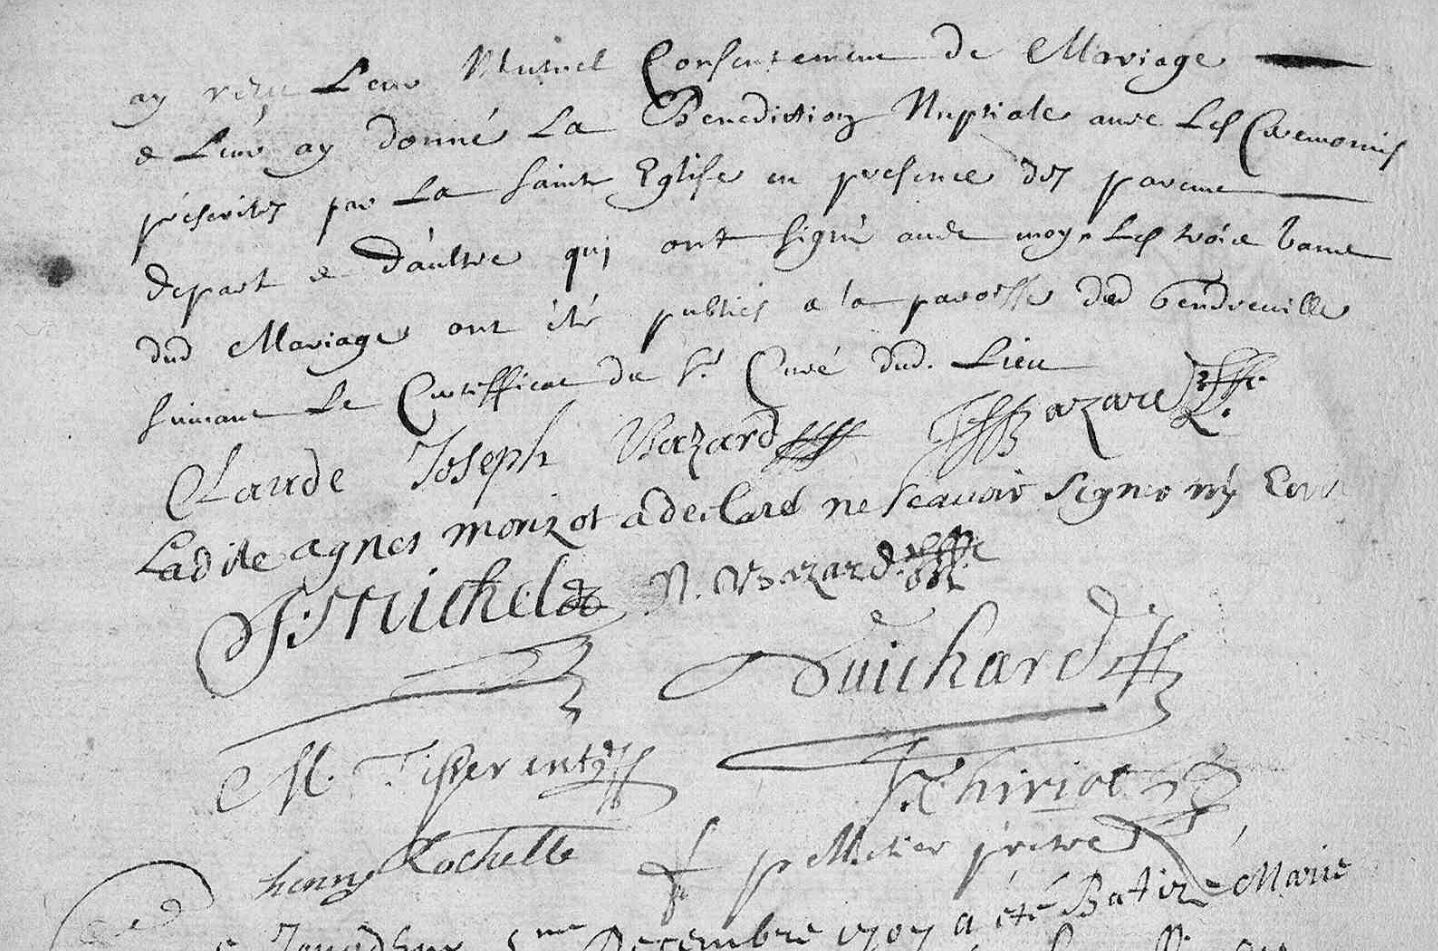 ay reçu Leur Mutuel Consentement de Mariage
e Leur ay donné La Benediction Nuptiale avec Les Ceremonies
préscrites par La Sainte Eglise en presence des parens
depart e daultre qui ont signé avec moy Les trois bans
dud Mariage ont été publiés a la paroisse dud Gendreville
suivant Le Certifficat du Sr. Curé dud. Lieu
Claude Joseph Bazard Bazard
Ladite agnes monzot a declaré ne scavoir signer ny
Michel N. Bazard
Guichard
M. Tisserent Thiriot
henry Rochette pelletier prêtre
Decembre 1707 a été Batizé Marie